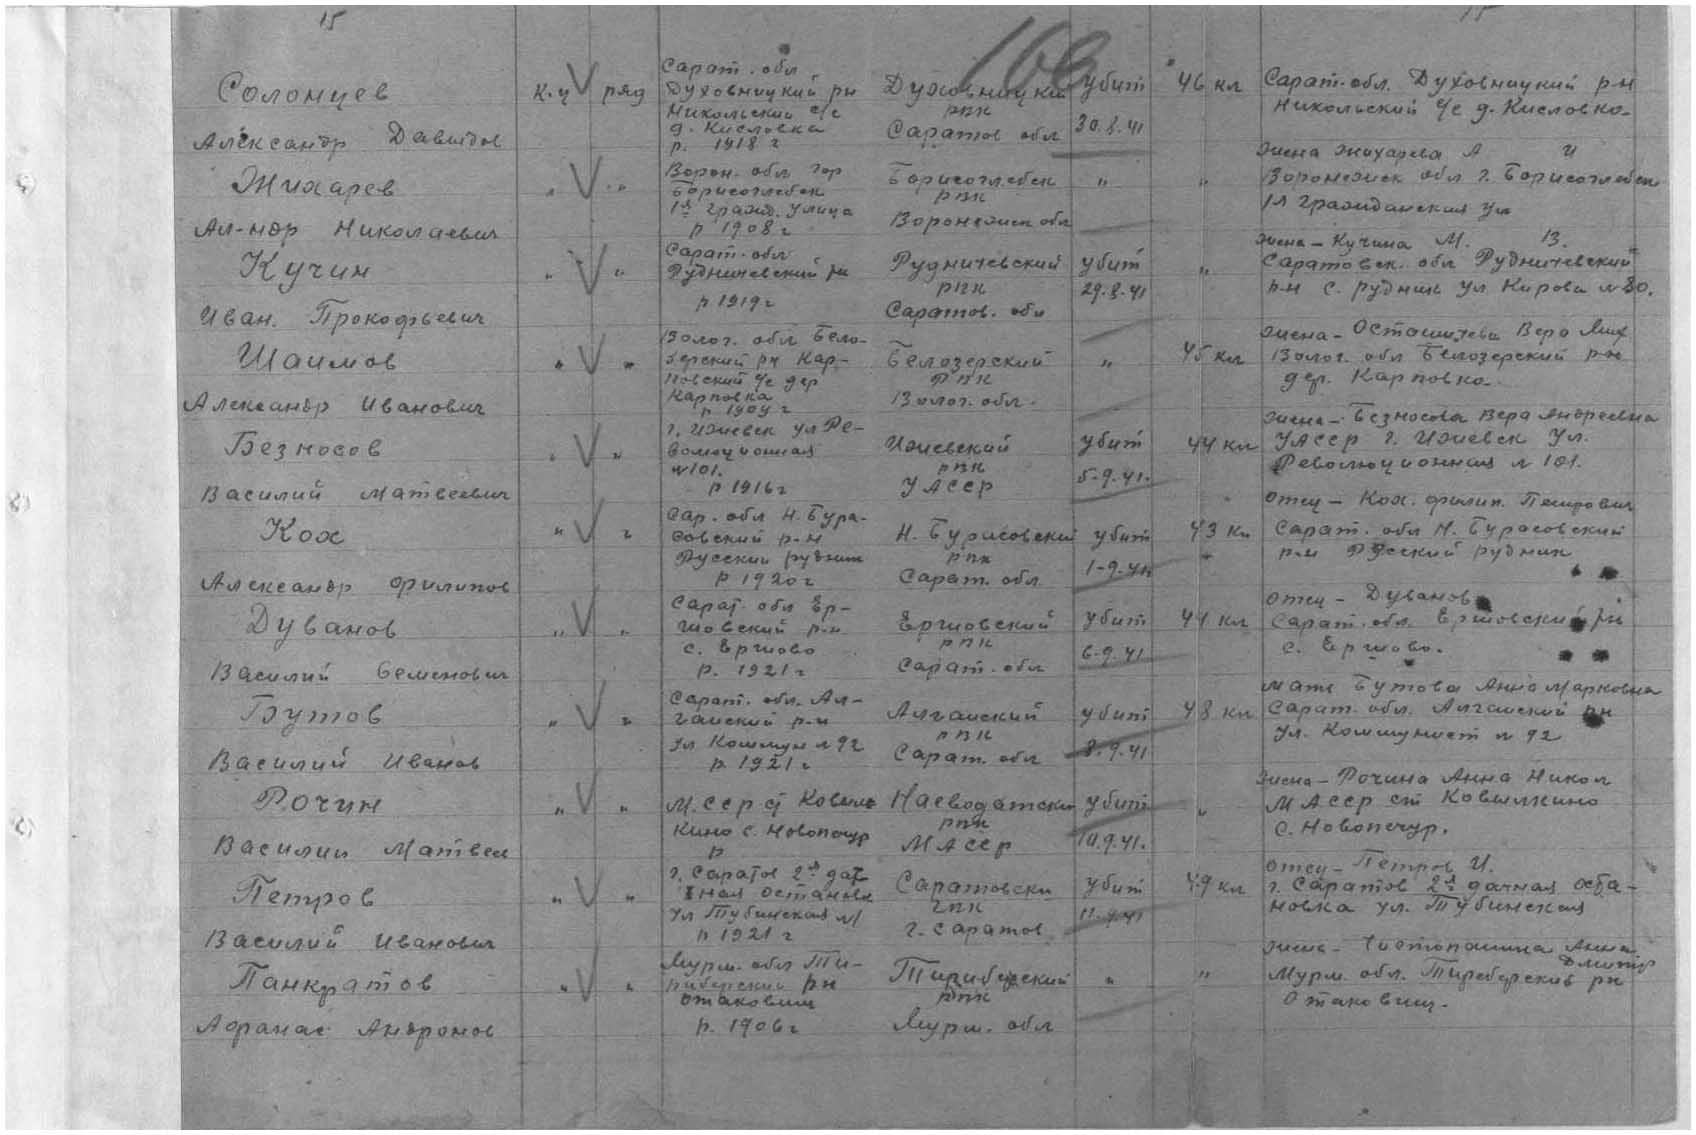 15 15
166
Солонцев к-ц ряд Сарат. обл Духовницкий рн Никольский с/с д. Кисловка р. 1918 г Духовницкий рпк Саратов обл убит 30.8.41 46 кл Сарат. обл. Духовницкий р-н
Никольский с/с д. Кисловка.
Александр Давидов
жена Жихарева А И
Жихарев " " Ворон. обл гор Борисоглебск 1я гражд. улица р 1908 г Борисоглебск рвк Воронежск обл " " Воронежск обл г. Борисоглебск
1я гражданская ул
Ал-ндр Николаевич
жена – Кучина М. В.
Кучин " " Сарат. обл Рудничевский рн р 1919 г Рудничевский рпк Саратов. обл убит 29.8.41 " Саратовск. обл Рудничевский
р-н с. рудник ул Кирова № 80.
Иван. Прокофьевич
жена – Вера Мих
Шаимов " " Волог. обл Бело- зерский рн Кар- повский с/с дер Карповка р 1909 г Белозерский рпк Волог. обл. " 45 кл Волог. обл Белозерский р-н
дер. Карповка.
Александр Иванович
жена – Безносова Вера Андреевна
Безносов " " г. Ижевск ул Ре- волюционная № 101. р 1916 г Ижевский рвк УАССР убит 5-9-41. 44 кл УАССР г. Ижевск ул.
Революционная № 101.
Василий Матвеевич
отец – Кох. Филип. Петрович
Кох " " Сар. обл Н. Бура- совский р-н Русский рудник р 1920 г Н. Бурасовский рпк Сарат. обл убит 1-9-41 43 кл Сарат. обл Н. Бурасовский
р-н Русский рудник
Александр Филипов
отец – Дуванов
Дуванов " " Сарат. обл Ер- шовский р-н с. Ершово р. 1921 г Ершовский рпк Сарат. обл убит 6-9.41 44 кл Сарат. обл. Ершовский рн
с. Ершово.
Василий Семенович
мать Бутова Анна Марковна
Бутов " " Сарат. обл. Ал- гайский р-н ул Коммун № 92 р. 1921 г Алгайский рвк Сарат. обл убит 8.9.41 48 кл Сарат. обл. Алгайский рн
ул. Коммунист № 92
Василий Иванов
жена – Рочина Анна Никол
Рочин " " М.ССР ст Ковыл кино с. Новопочур р рпк МАССР убит 10.9.41. " МАССР ст Ковылкино
с. Новопечур.
Василий Матвеи
отец – Петров И.
Петров " " г. Саратов 2я дач ная остановк ул Тубинская № р 1921 г Саратовски гпк г. Саратов убит 11.9.41 49 кл г. Саратов 2я дачная оста-
новка ул. Тубинская
Василий Иванович
жена – Анна Дмитр
Панкратов " " Мурм. обл Ти- риберский рн отаковищ р. 1906 г Тириберский рпк Мурм. обл " " Мурм. обл. Тиреберский рн
отаковищ.
Афанас Андронов